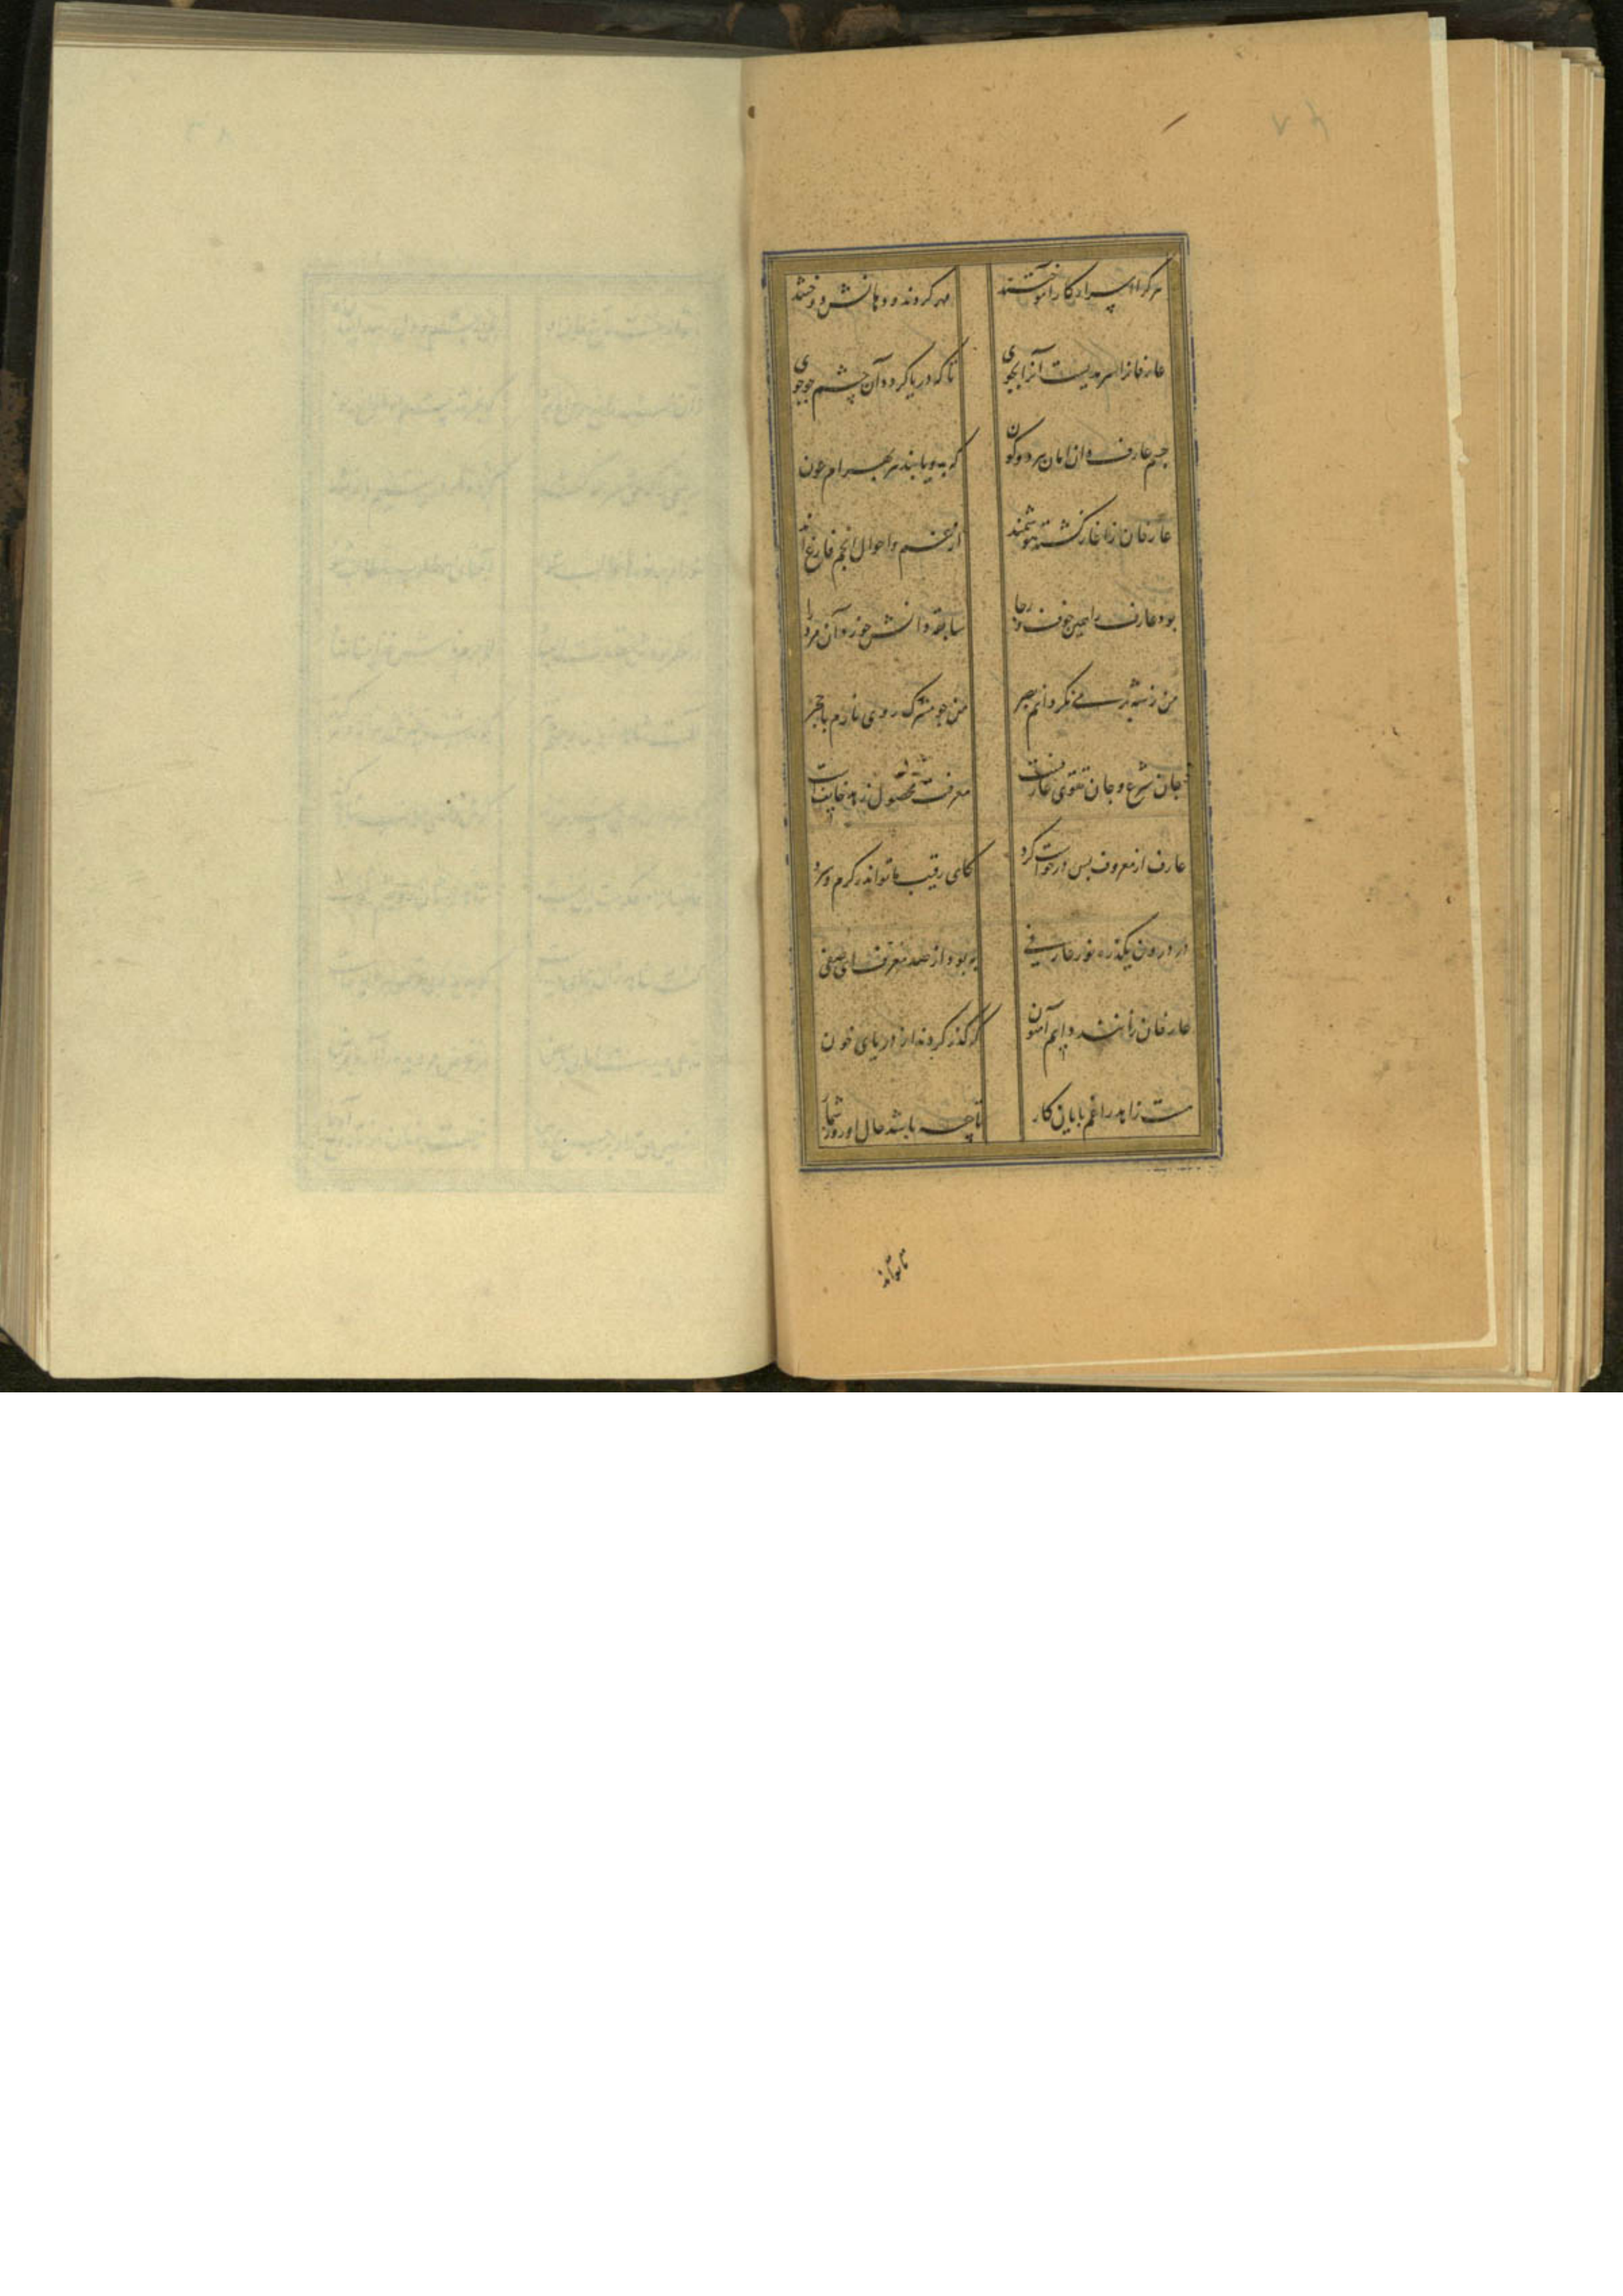 هرکرا اسرار کار آموختند مهر کردند و دهانش دوختند
عارفانرا سرمدیست آنرا بجوی تا که دریا کردد آن چشم چو جوی
جسم عارف دان امان هر دو کون کر بدو یابند هر بهرام عون
عارفان زاغاز کشته هوشمند از غم و احوال انجم فارغ اند
بود عارف را همین خوف و رجا سابقه دانش خورد آن هر دو را
من ز شه بر می نکردانم بصر من چو مشرک روی نارم با حجر
جان شرع و جان تقوی عارفست معرفت محصول زهد سالفست
عارف از معروف بس درخواست کرد کای رقیب ما تو اندر کرم و سرد
در درون یکذره نور عارفی به بود از صد معرف ای صفی
عارفان زانند دایم آمنون که گذر کردند از دریای خون
هست زاهد را غم پایان کار تا چه باشد حال او روز شمار